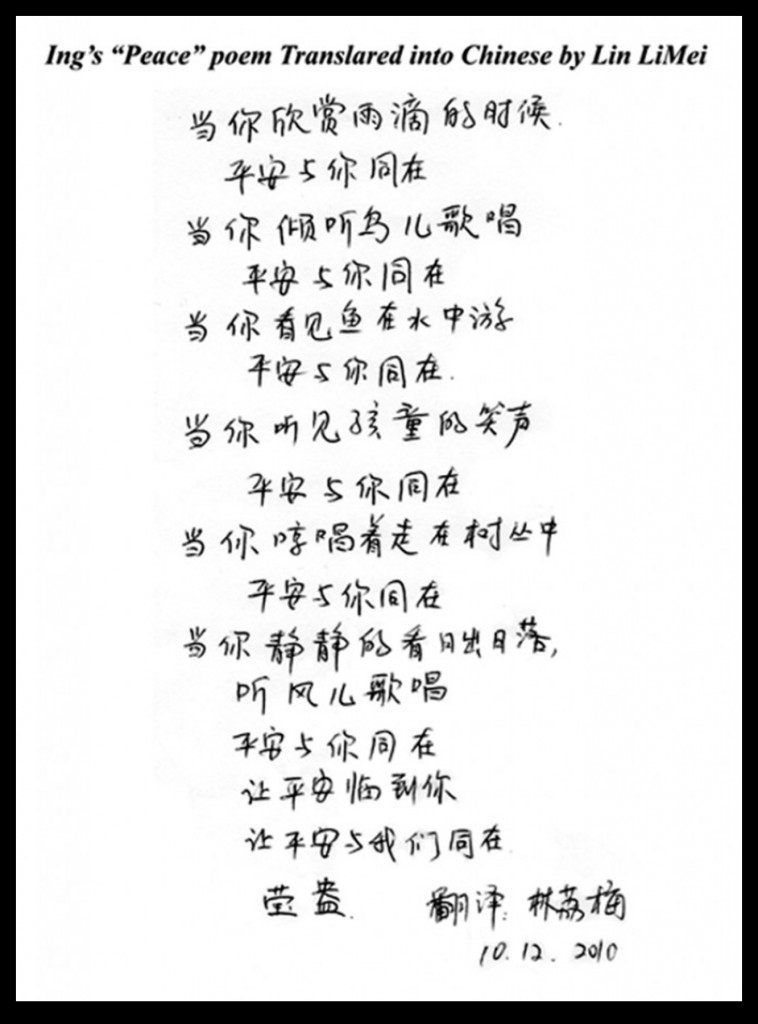 Ing's “Peace” poem Translared into Chinese by Lin LiMei
当你欣赏雨滴的时候.
平安与你同在
当你倾听鸟儿歌唱
平安与你同在
当你看见鱼在水中游
平安与你同在.
当你听见孩童的笑声
平安与你同在
当你哼唱着走在树丛中
平安与你同在
当你静静的看日出日落,
听风儿歌唱
平安与你同在
让平安临到你
让平安与我们同在.
翻译: 林荔梅
10.12.2010